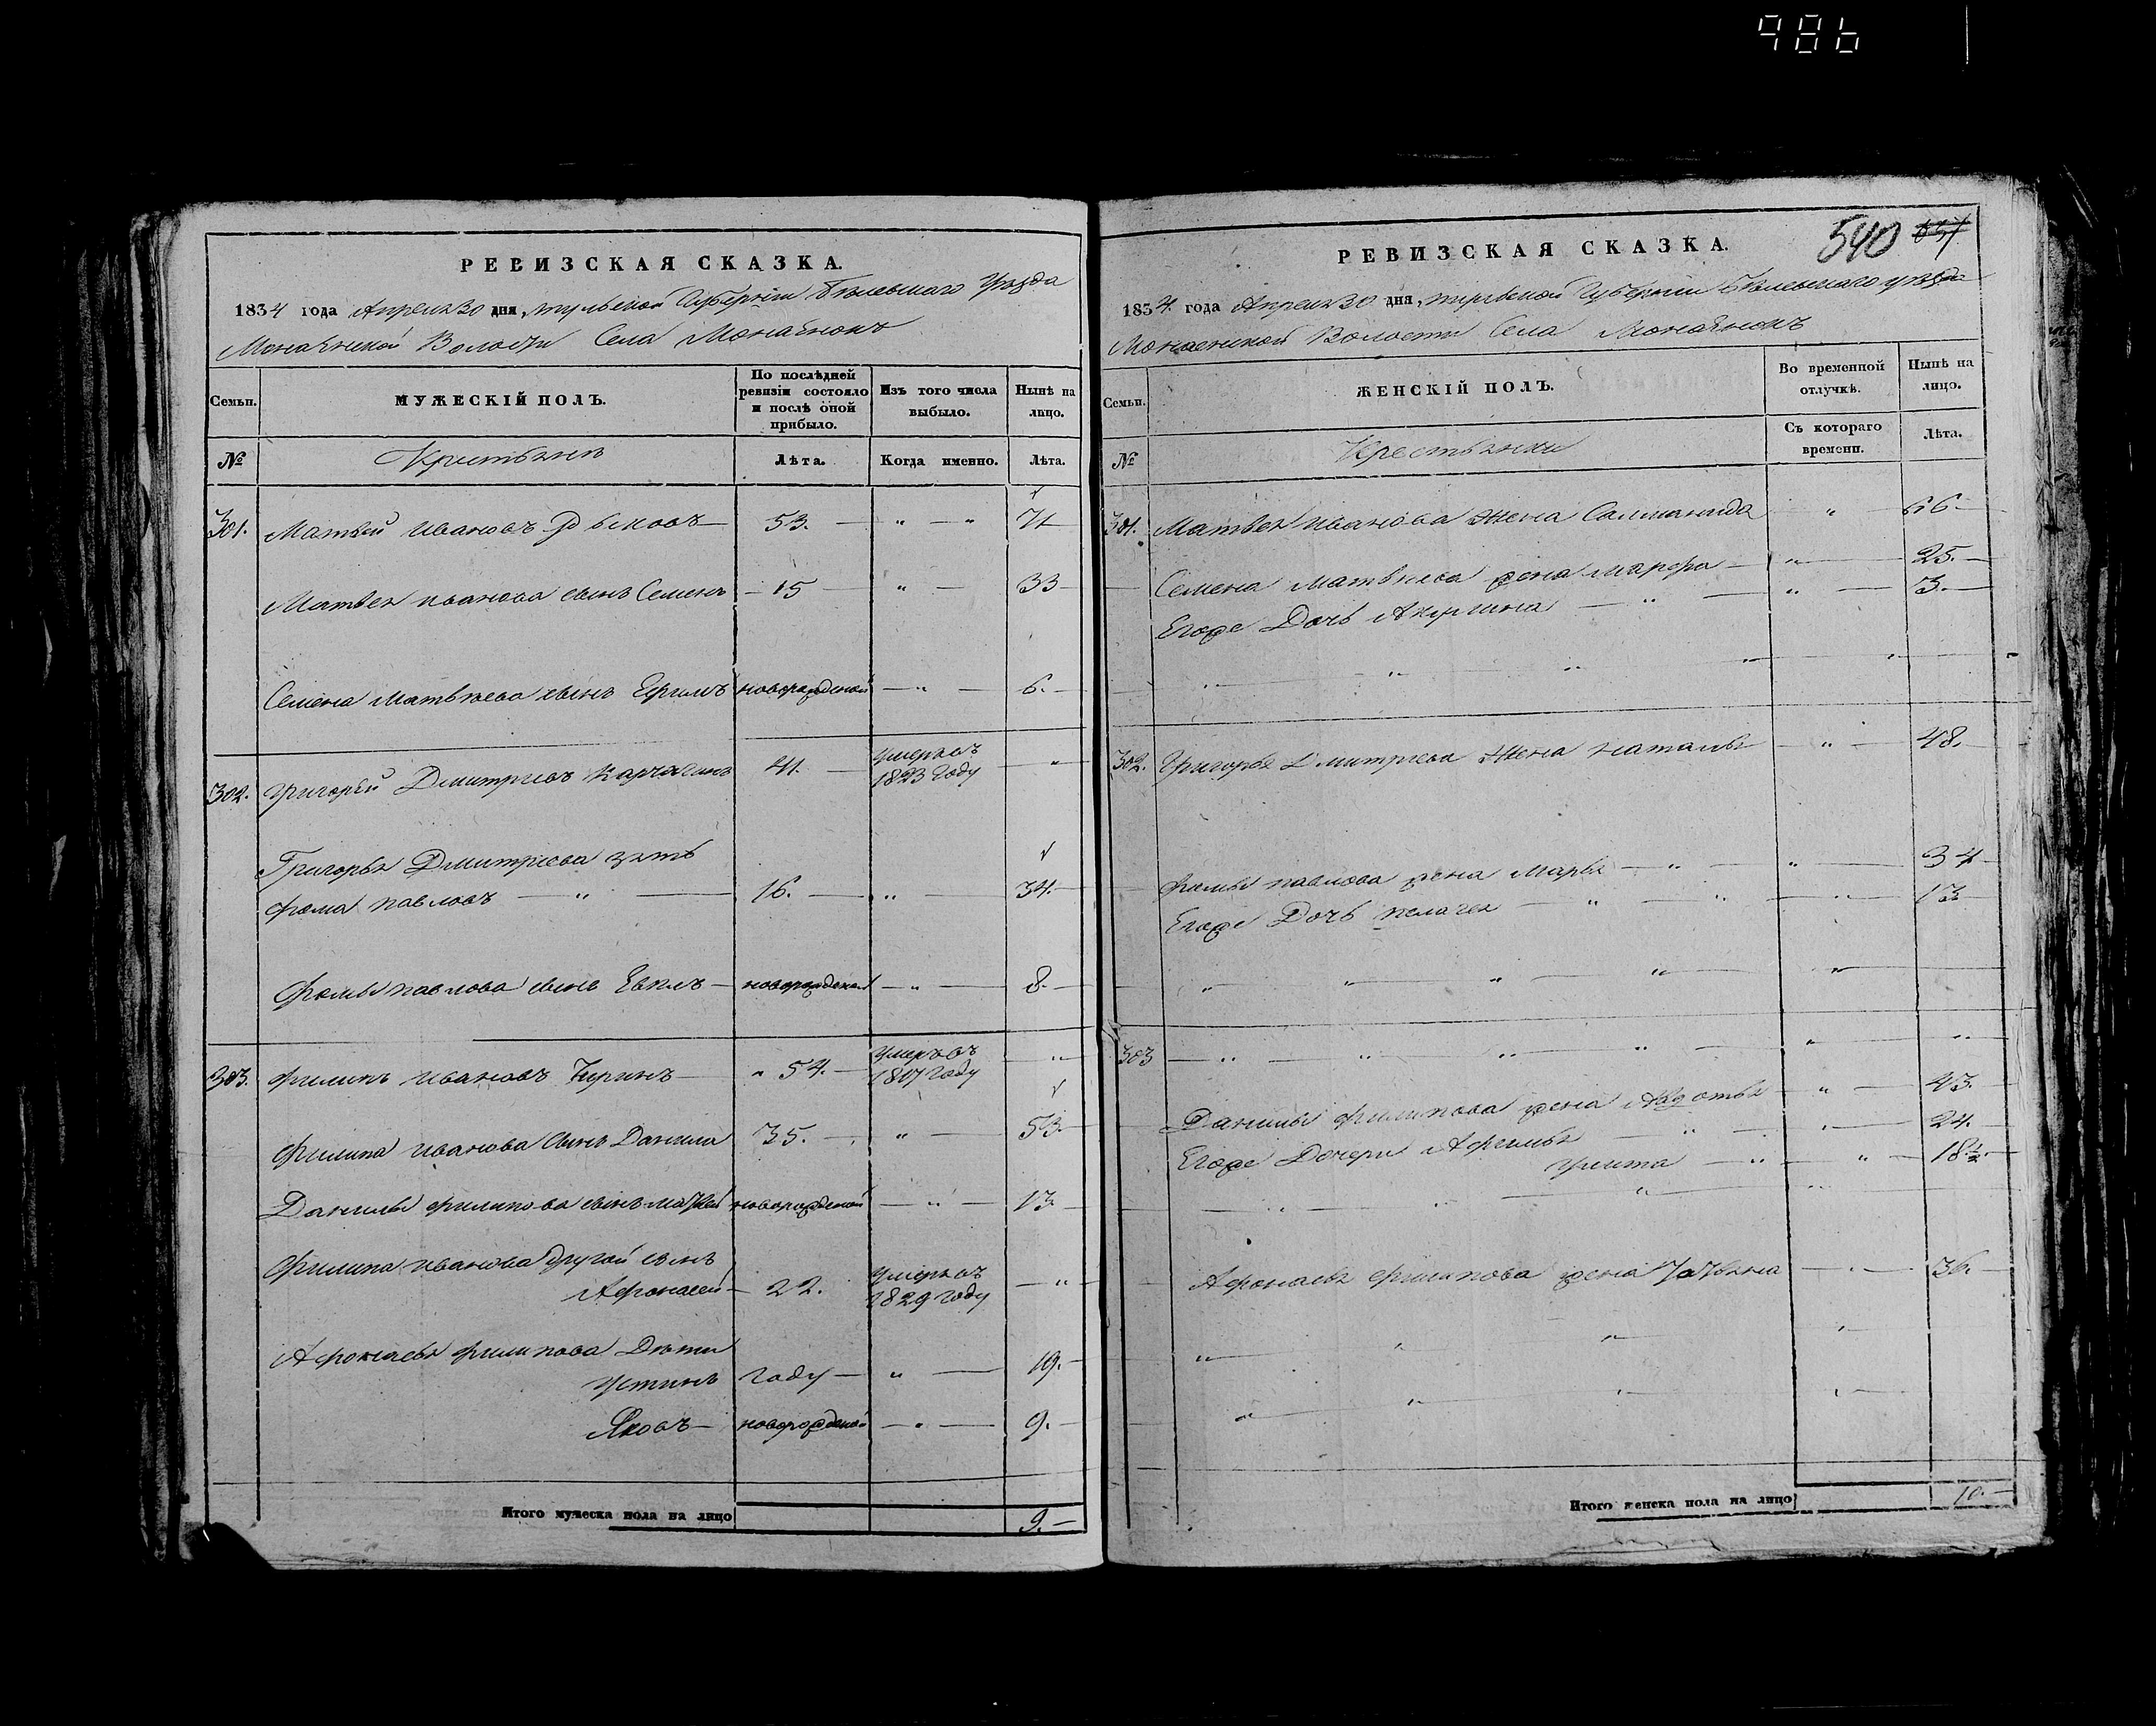 986
РЕВИЗСКАЯ СКАЗКА.
1834 года Апреля 30 дня, тульской Губернiи Бѣлевскаго Уѣзда
Монаенской Волости Села Монаенокъ
Семьи.
МУЖЕСКІЙ ПОЛЪ.
По послѣдней ревизіи состояло и послѣ оной прибыло.
Изъ того числа выбыло.
Нынѣ на лицо.
№
Крестьяне
Лѣта.
Когда именно.
Лѣта.
301. Матвей Ивановъ 53. " — " 71
Матвея иванова сынъ Семенъ 15 " 33
Семена матвѣева сынъ Ефимъ новорожденой " 6.
302. Григорей Дмитриевъ Карчагинъ 41. умеръ въ 1823 году "
Григорья Дмитриева зять
фома павловъ " 16. " 34.
фомы павлова сынъ новорожденой " 8.
303. филипъ ивановъ 54. умеръ въ 1817 году "
филипа иванова сынъ Данила 35. " 53
Данилы филипова сынъ матвей новорожденой " 13
филипа иванова другой сынъ
Афонасей 22. умеръ въ 1829 году "
Афонасья филипова Дѣти
устинъ году " 19.
Яковъ новорожденой " 9.
Итого мужеска пола на лицо 9.
540 637
РЕВИЗСКАЯ СКАЗКА.
1834. года Апреля 30 дня, тульской Губернiи Бѣлевскаго уѣзда
Монаенской Волости Села Монаенокъ
Семьи.
ЖЕНСКІЙ ПОЛЪ.
Во временной отлучкѣ.
Нынѣ на лицо.
№
Крестьянки
Съ котораго времени.
Лѣта.
301. Матвея иванова жена Саломанида " 66
Семена матвѣева жена марфа " 25.
Егоже Дочь Акулина " " 3.
" " " " "
302. Григорья Дмитриева жена наталья " 48.
фомы павлова жена марья " " 34
Егоже Дочь пелагея " " " 13
" " " " "
303 " " " " " "
Данилы филипова жена Авдотья " 43.
Егоже Дочери Афимья " " 24.
улита " " 18½.
" " " "
Афонасья филипова жена татьяна " 36.
" " " "
" " " "
Итого женска пола на лицо 10.